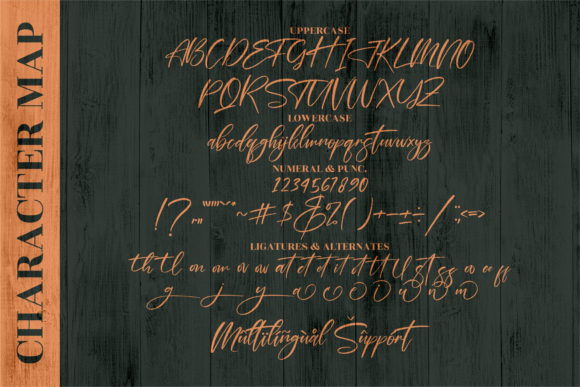 CHARACTER MAP
UPPERCASE
ABCDEFGHIJKLMNO
PQRSTUVWXYZ
LOWERCASE
abcdefghijklmnopqrstuvwxyz
NUMERAL & PUNC.
1234567890
!? ~#$&%()+-±÷/;<=>
LIGATURES & ALTERNATES
th tl on om ov ow at et ot it tt ll st ss oo ee ff
g j y a c e i o u n m
Multilingual Šupport